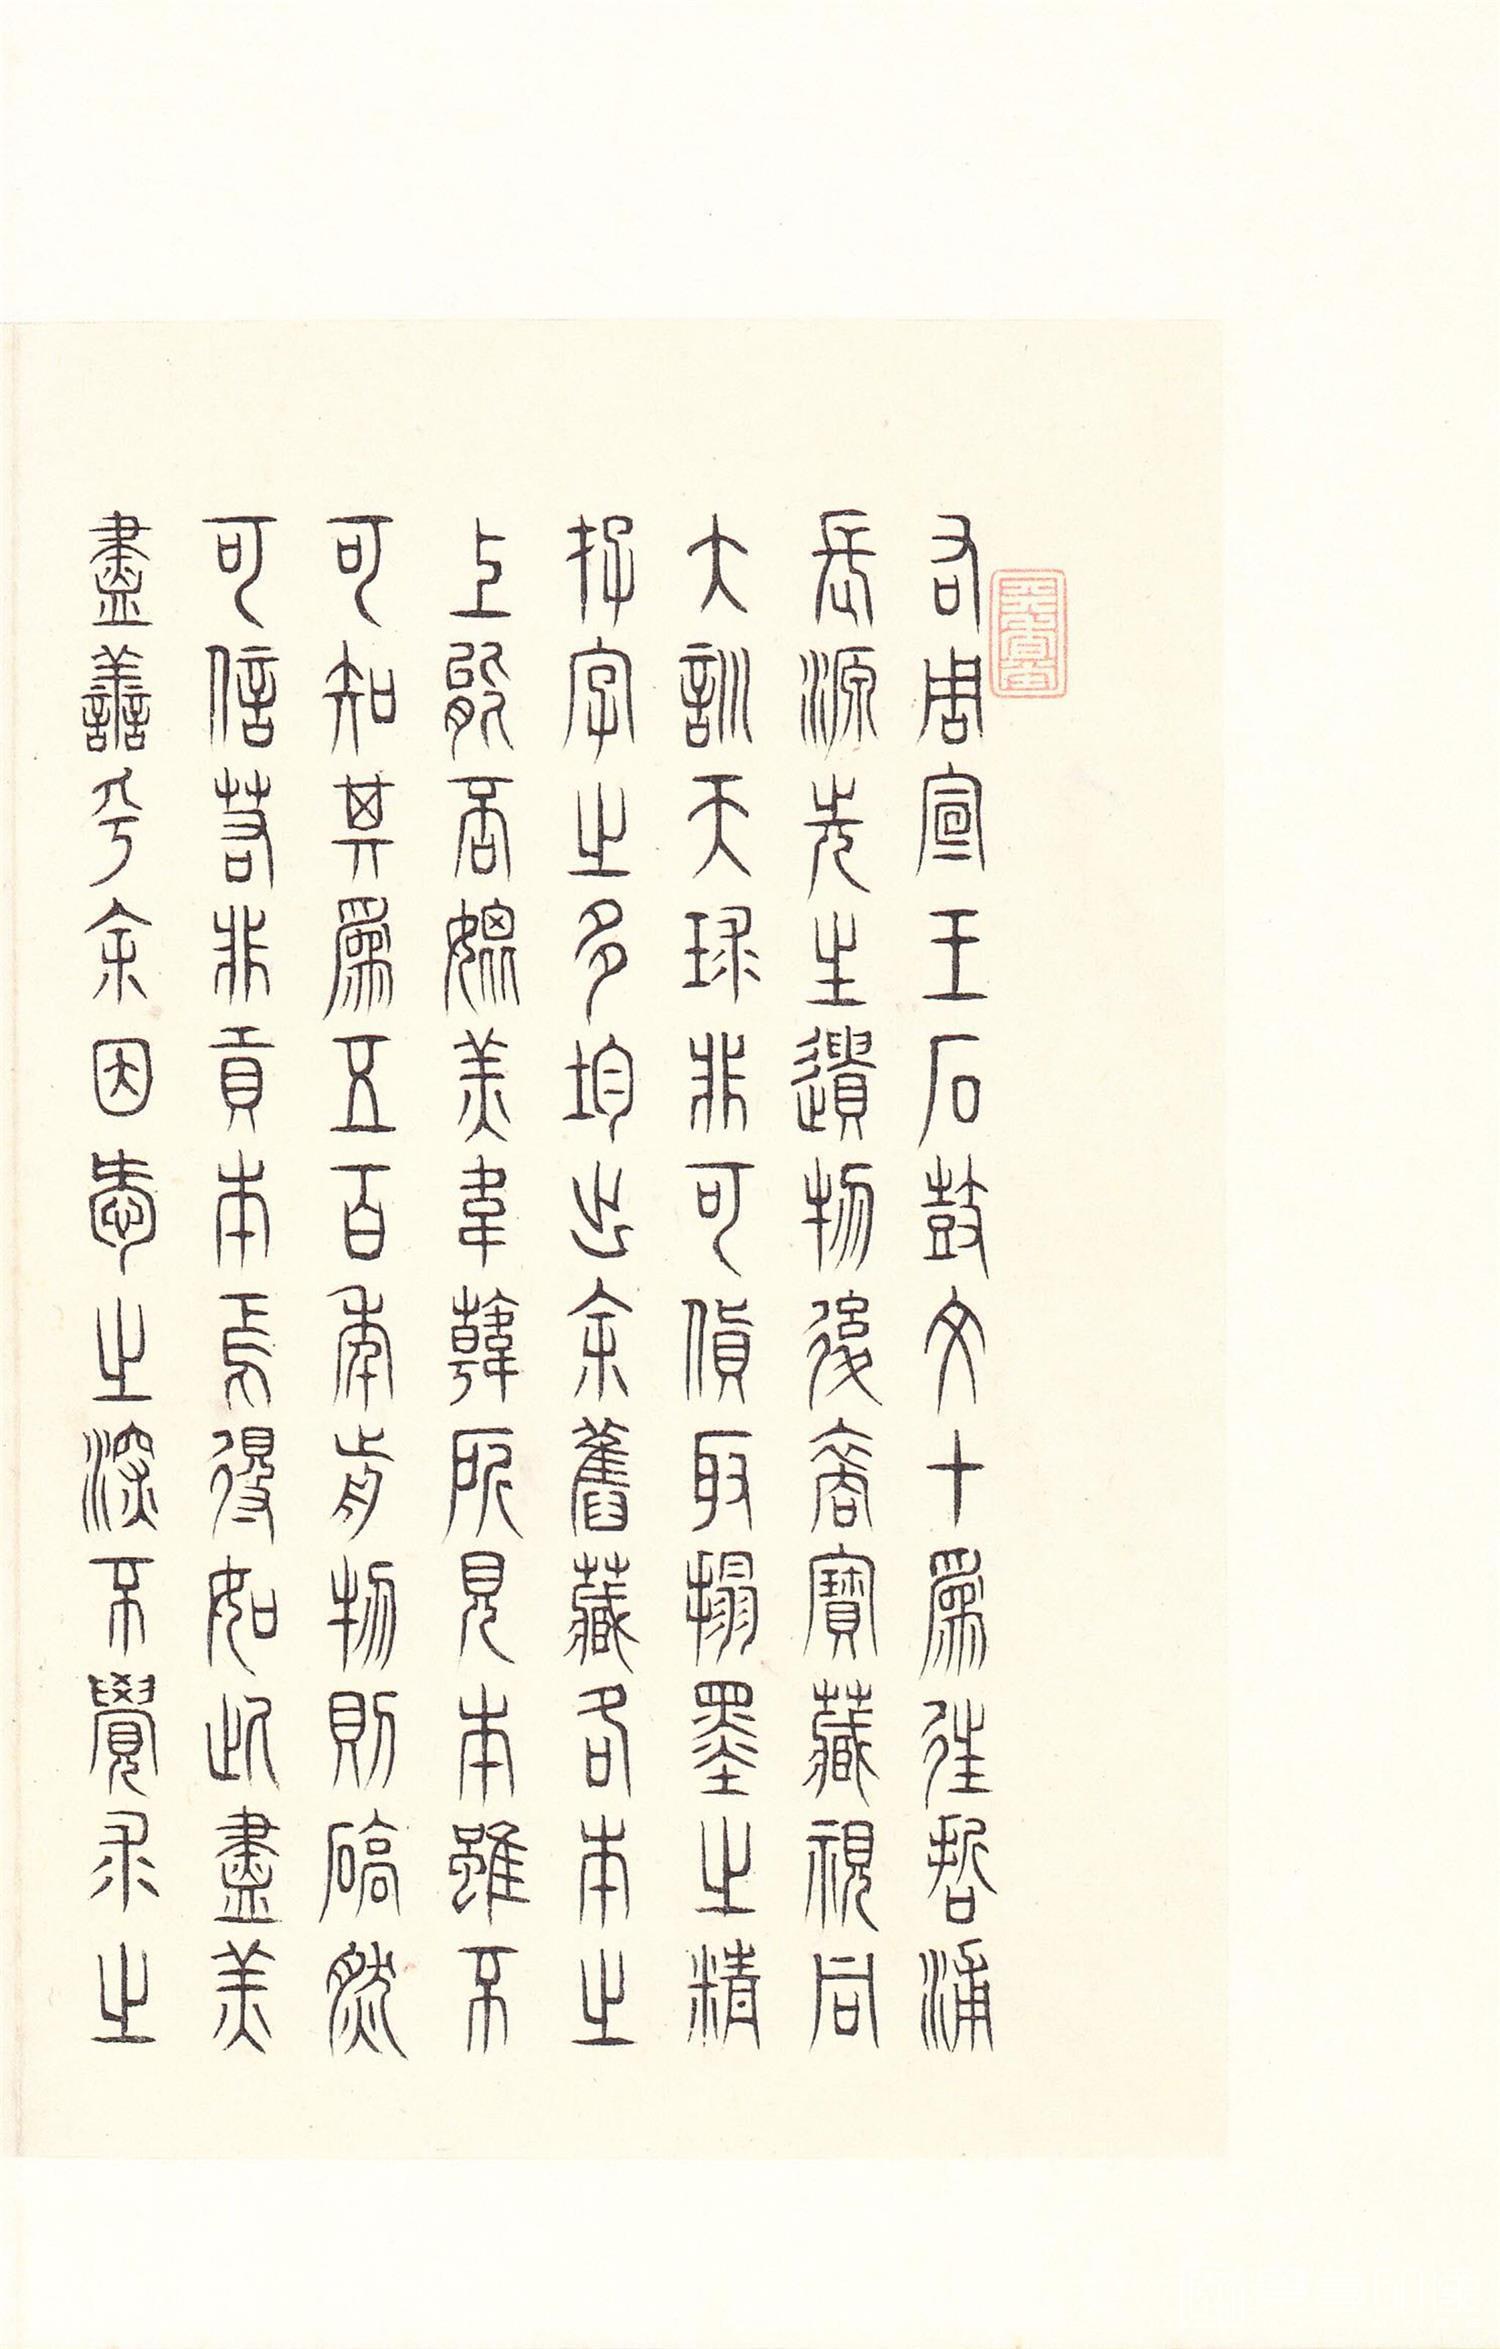 右周宣王石鼓文十為往哲浦
長源先生遺物後裔寶藏視同
大訓天球非可貨取搨墨之精
存字之多均出余舊藏各本之
上能否媲美韋韓所見本雖不
可知其為五百年前物則碻然
可信若非貢本焉得如此盡美
盡善乎余因愛之深不覺求之